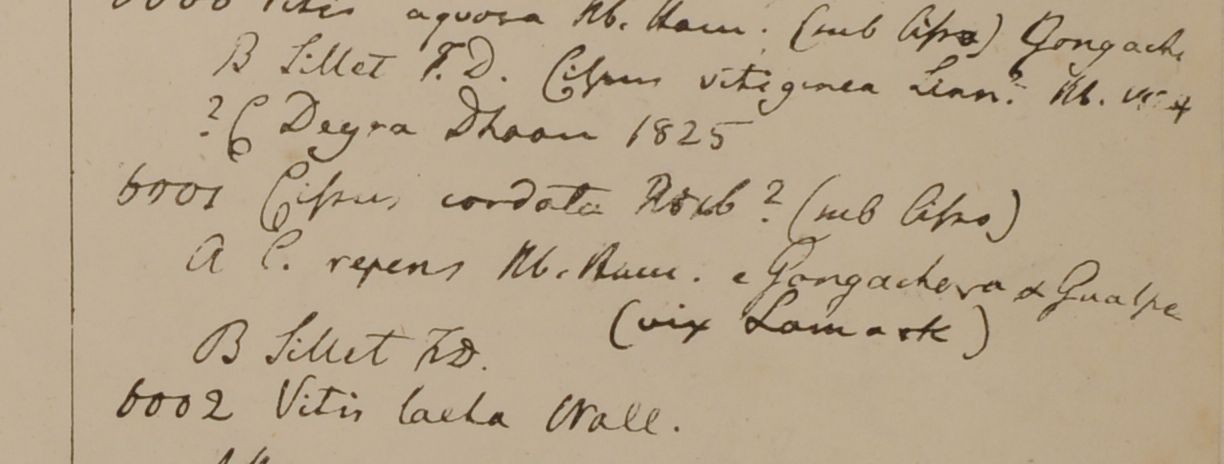 6000 Vitis aquosa Hb. Ham. (sub Cisso) Gongach
B Sillet F.D. Cissus vitiginea Linn? Hb.
? C Deyra Dhoon 1825
6001 Cissus cordata Roxb? (sub Cisso)
A C. repens Hb. Ham. e Gongachora & Gualpa
(vix Lamark)
B Sillet F.D.
6002 Vitis laeta Wall.